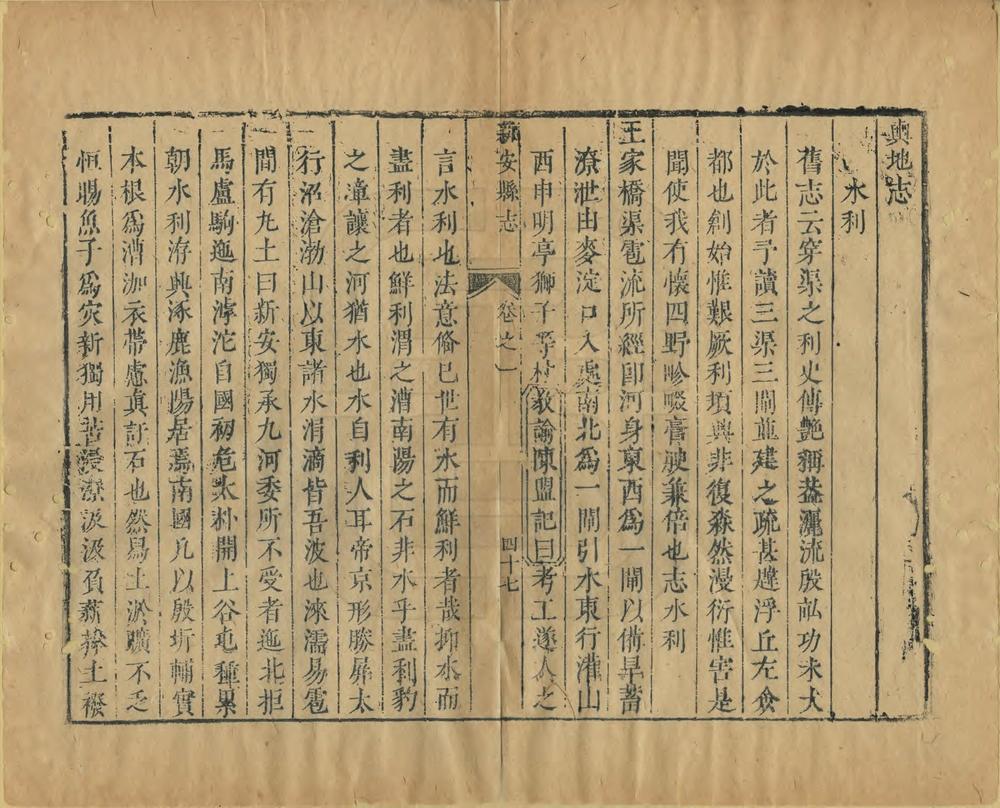 輿地志
水利
舊志云穿渠之利史傳艷稱葢灑流殷畆功未大
於此者予讀三渠三閘並建之疏甚韙浮丘左貪
都也創始惟艱厥利墳興非復森然漫衍惟害是
聞使我有懷四野畛畷膏腴兼倍也志水利
王家橋渠雹流所經卽河身東西爲一閘以備旱蓄
潦泄由麥淀口入處南北爲一閘引水東行灌山
西申明亭獅子等村教諭陳盟記曰考工遂人之
新安縣志 卷之一 四十七
言水利也法意脩已世有水而鮮利者哉抑水而
盡利者也鮮利渭之漕南陽之石非水乎盡利豹
之漳讓之河猶水也水自利人耳帝京形勝屏太
行沼滄渤山以東諸水涓滴皆吾波也淶濡易雹
間有九土曰新安獨承九河委所不受者迤北拒
馬盧駒迤南滹沱自國初危太朴開上谷屯種累
朝水利洊興涿鹿漁陽居焉南國凡以殷圻輔實
本根爲漕泇衣帶慮眞訏石也然舄土淤曠不乏
恒暘魚子爲灾新獨用苦浸潦汲汲負薪捧土褹